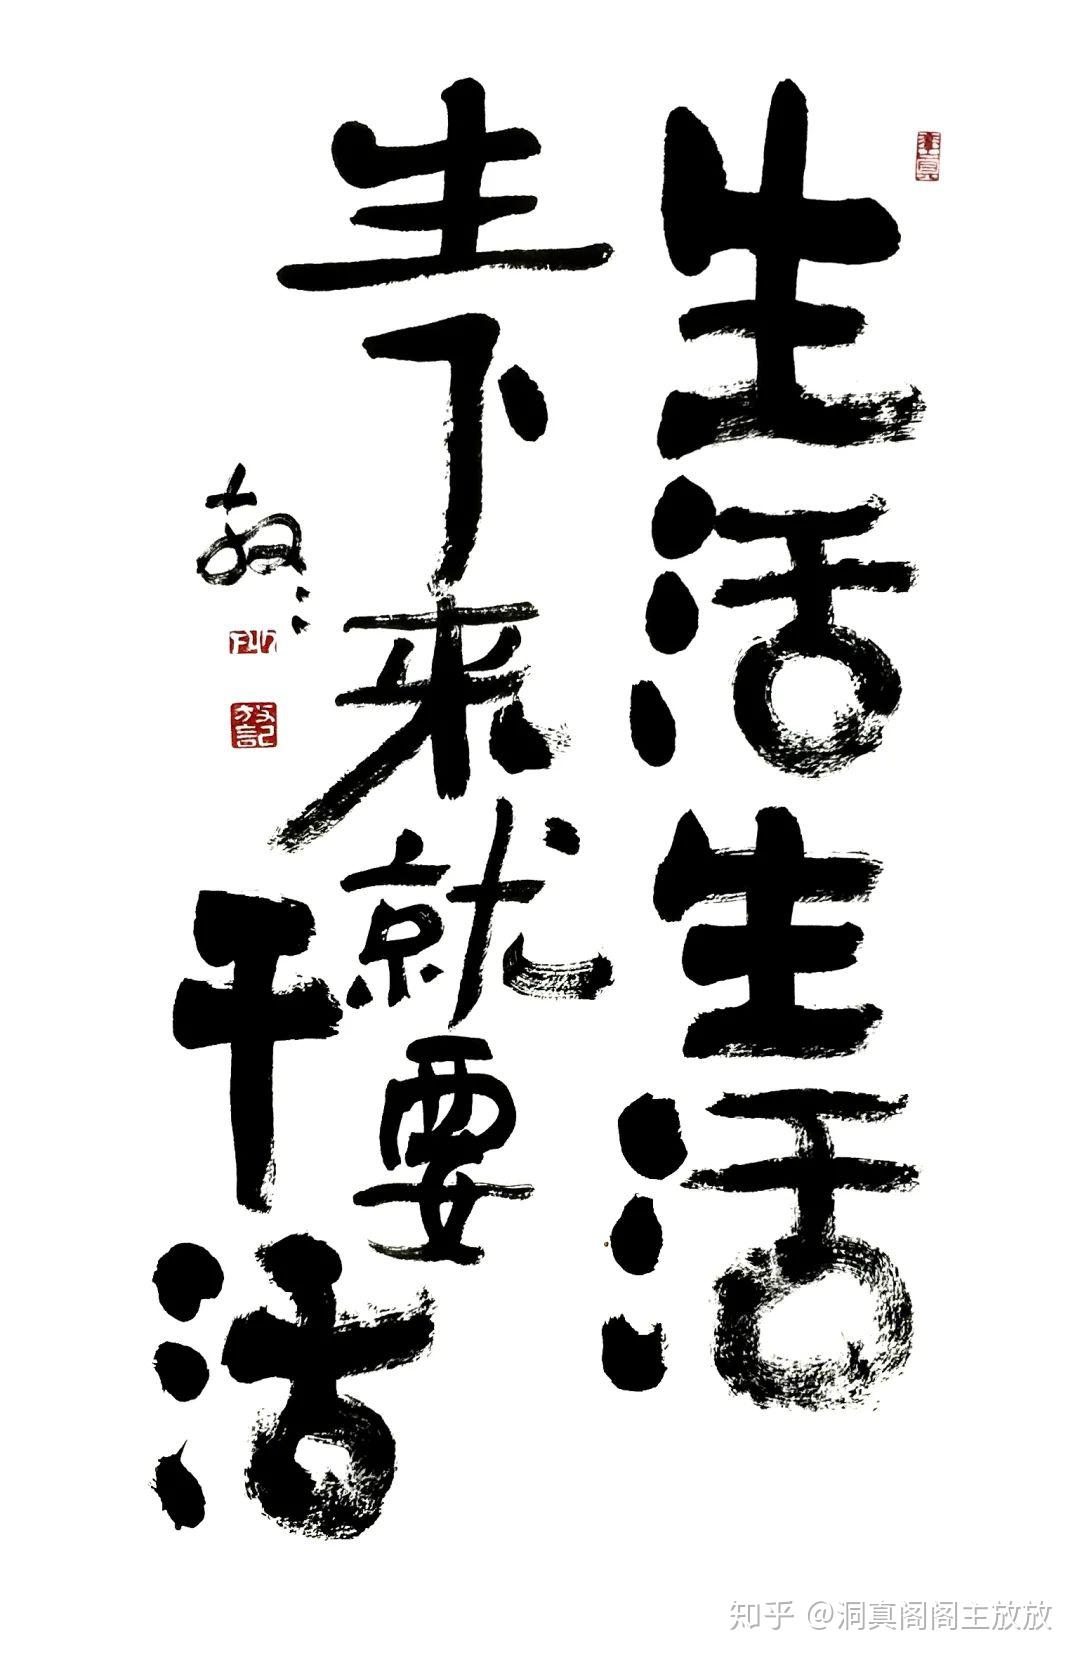 生活生活
生下来就要
干活
放放
放記
知乎 @洞真阁阁主放放